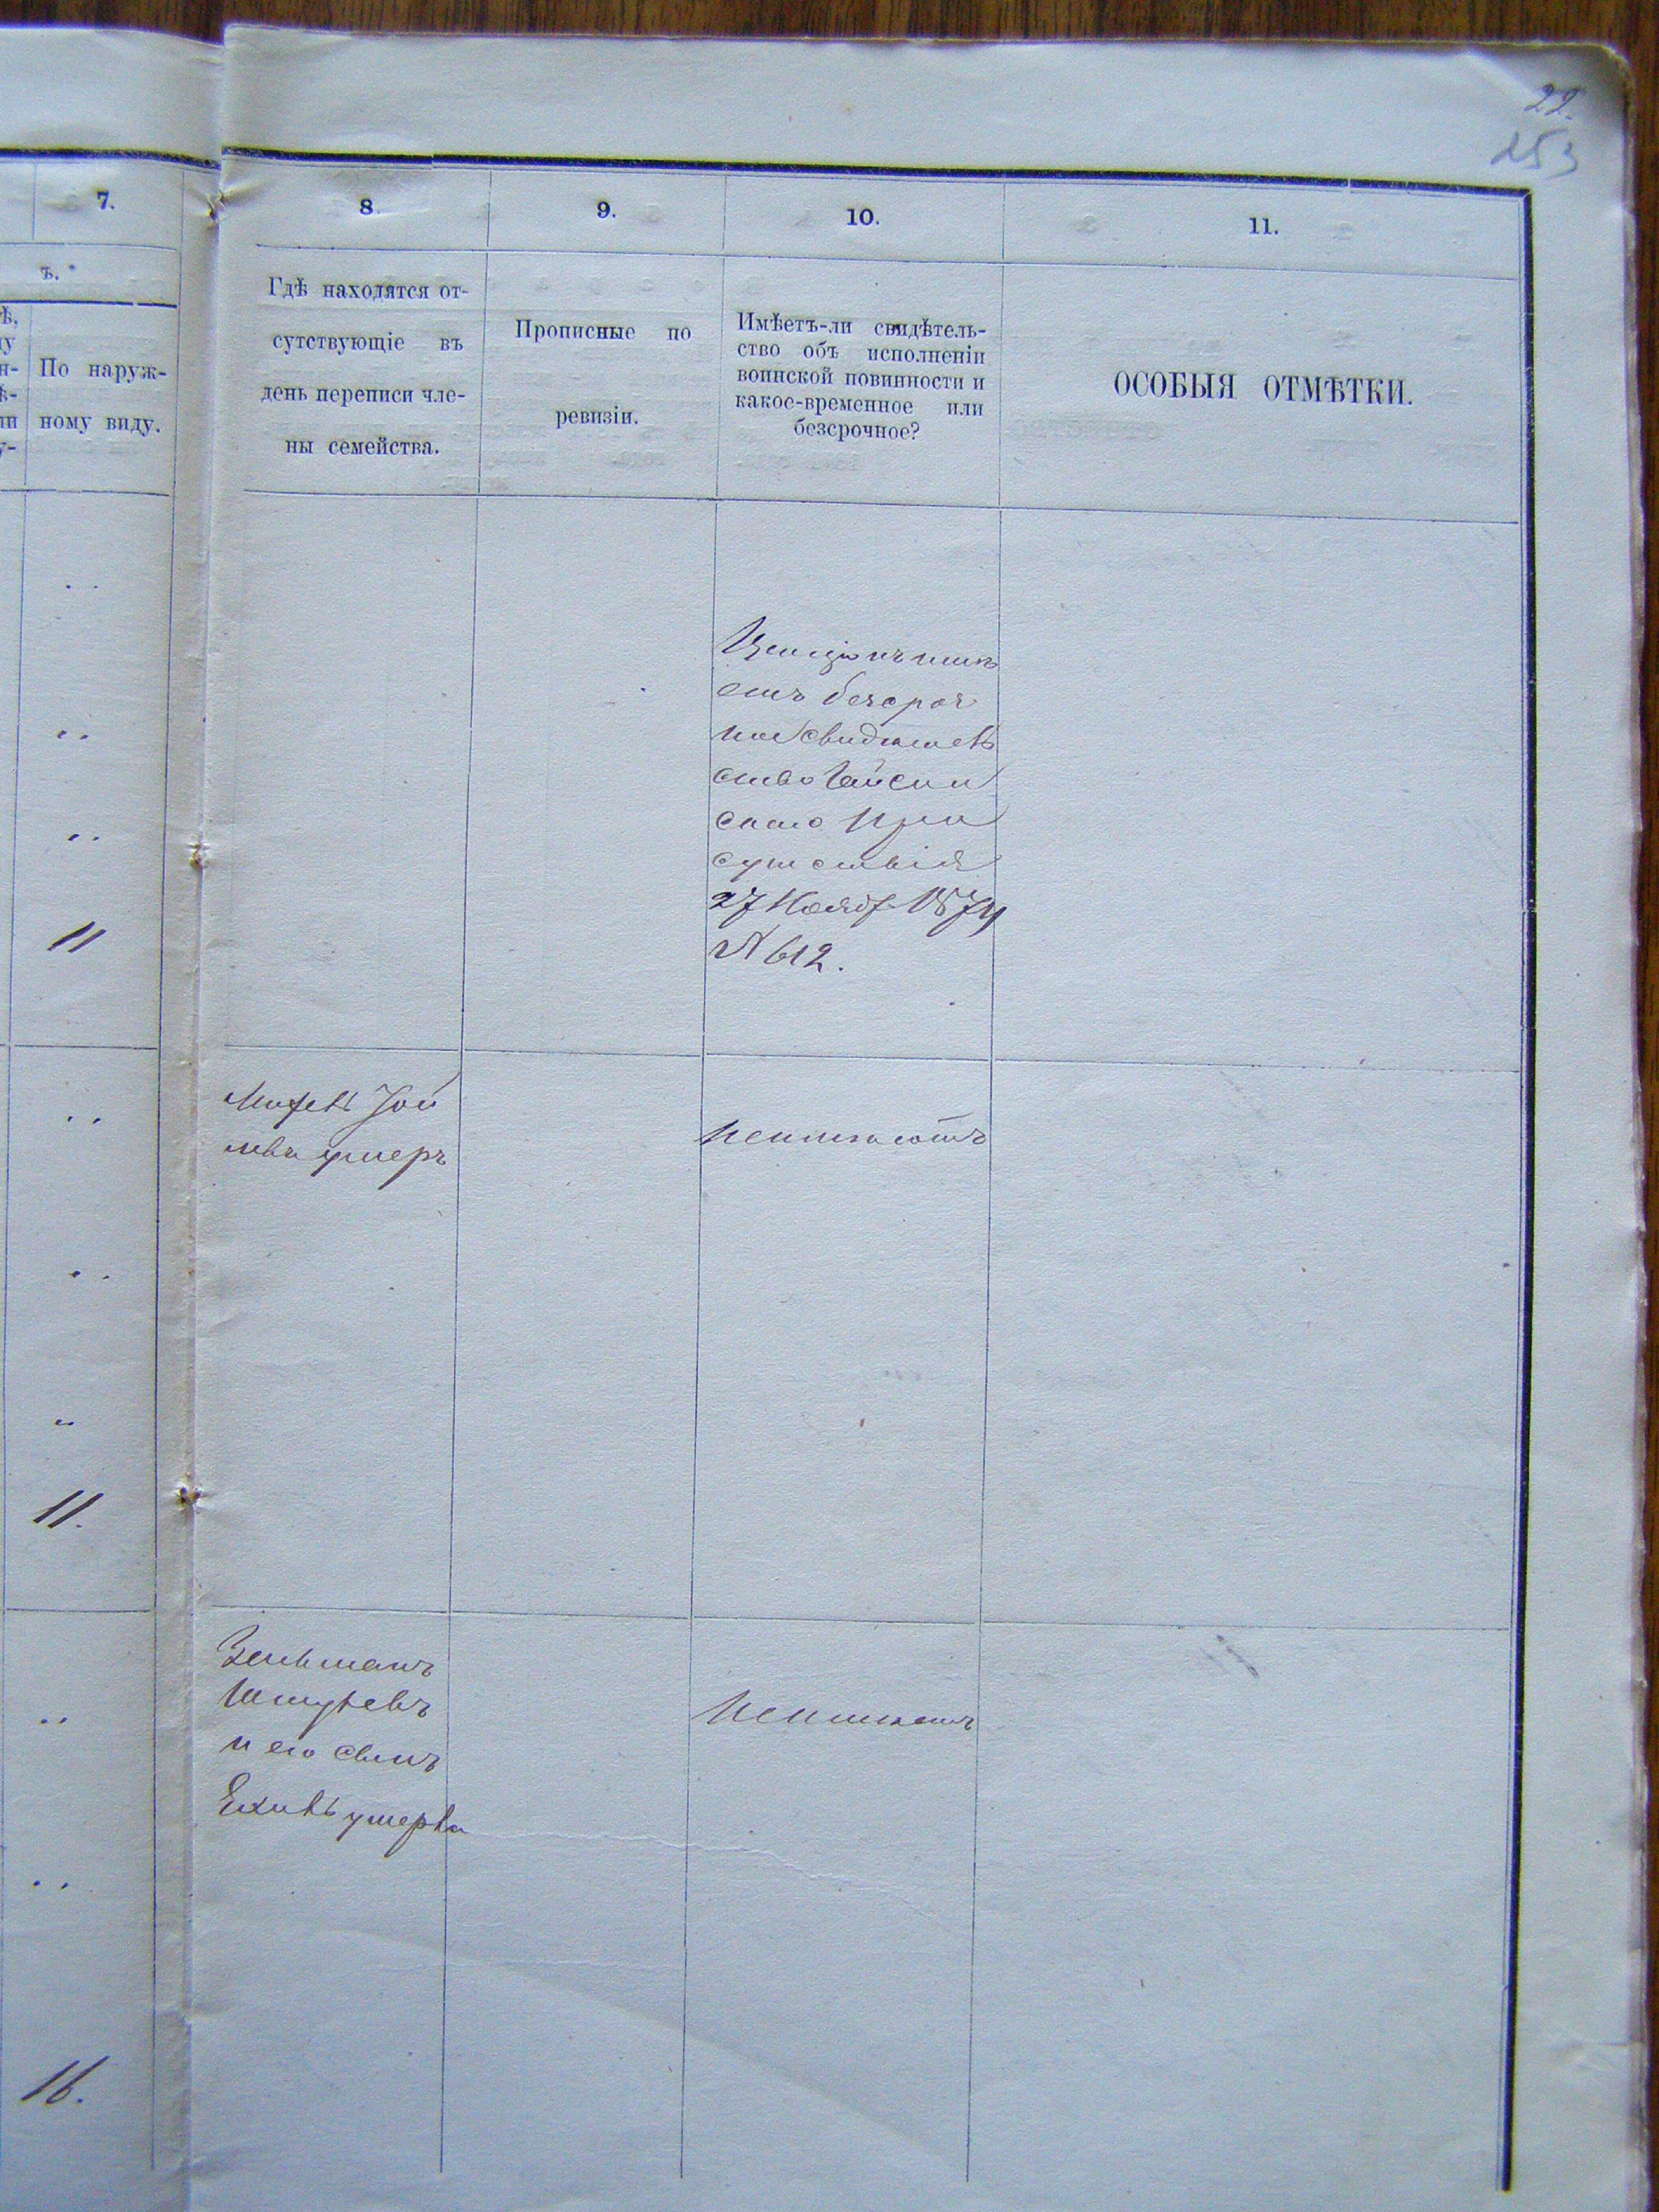 22.
253
7.
8.
9.
10.
11.
ъ.
По наруж-
ному виду.
Гдѣ находятся от-
сутствующіе въ
день переписи чле-
ны семейства.
Прописные по
ревизіи.
Имѣетъ-ли свидѣтель-
ство объ исполненіи
воинской повинности и
какое-временное или
безсрочное?
ОСОБЫЯ ОТМѢТКИ.
етъ безсроч
ное свидѣтель
ство Гайсин
скаго При
сутствія
27 Нояб 1874
№ 612.
11
умеръ
неимѣютъ
11.
Зельманъ
и его сынъ
умерли
неимѣетъ
16.